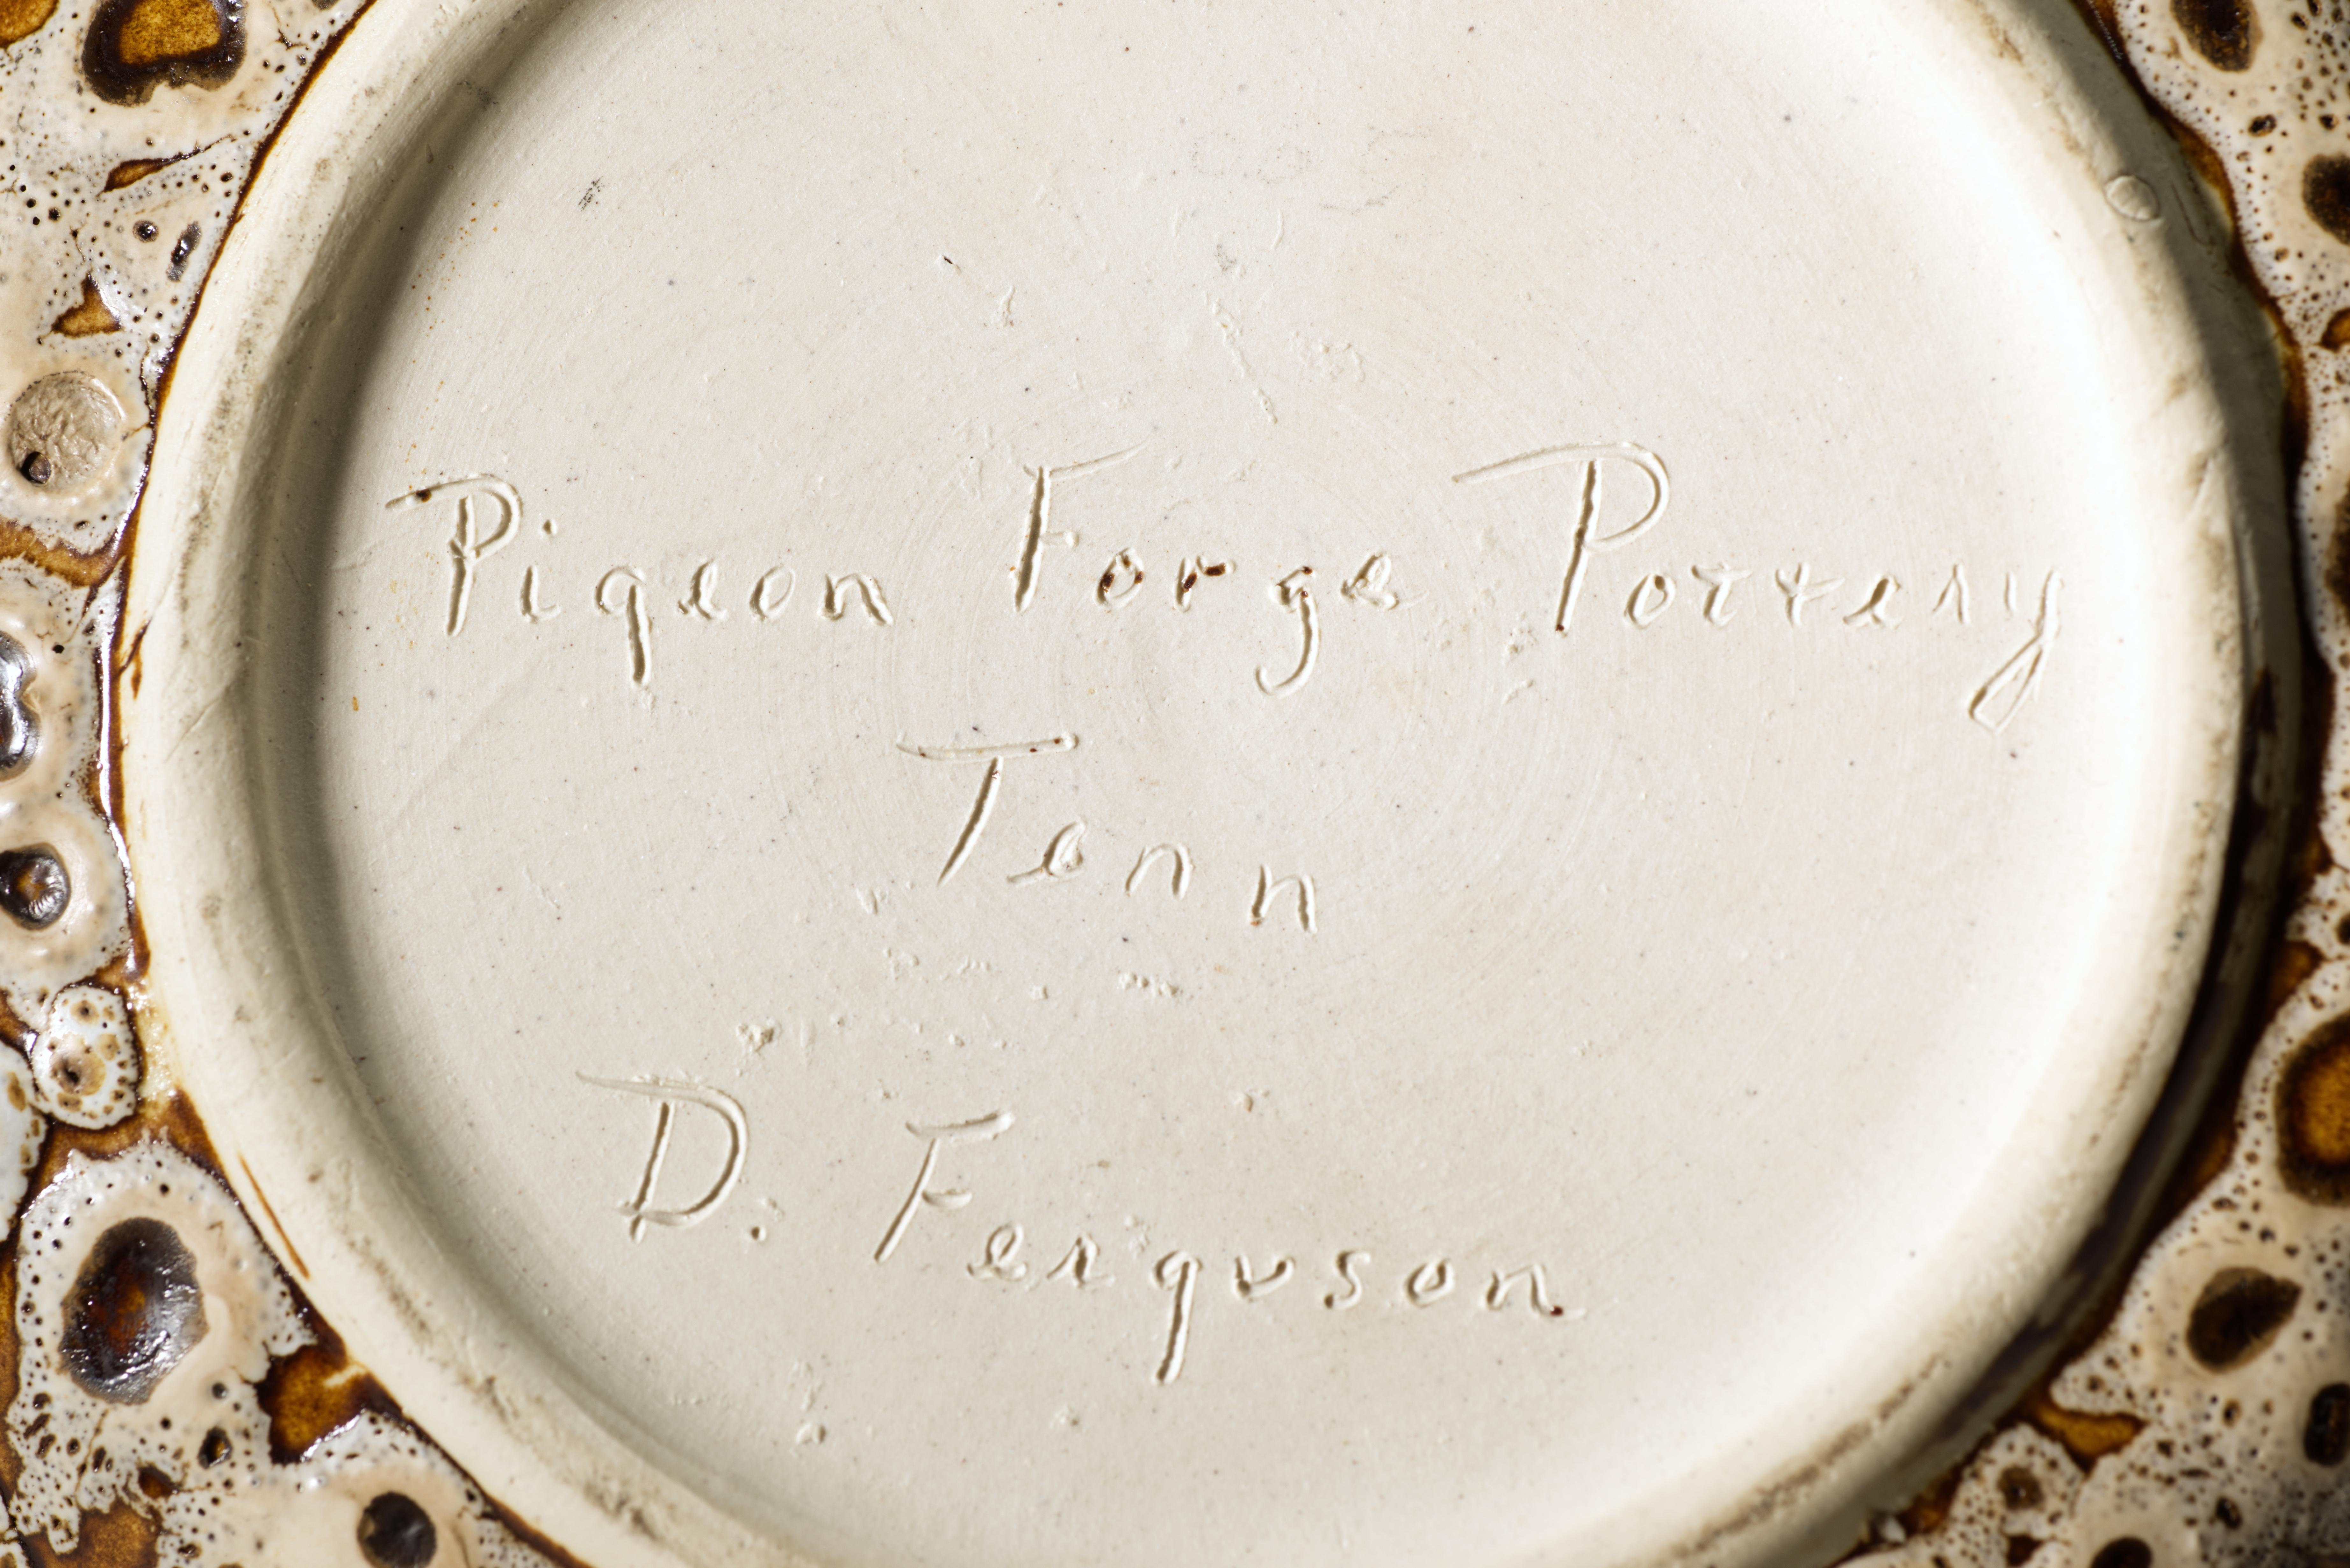 Pigeon Forge Pottery
Tenn
D. Ferguson